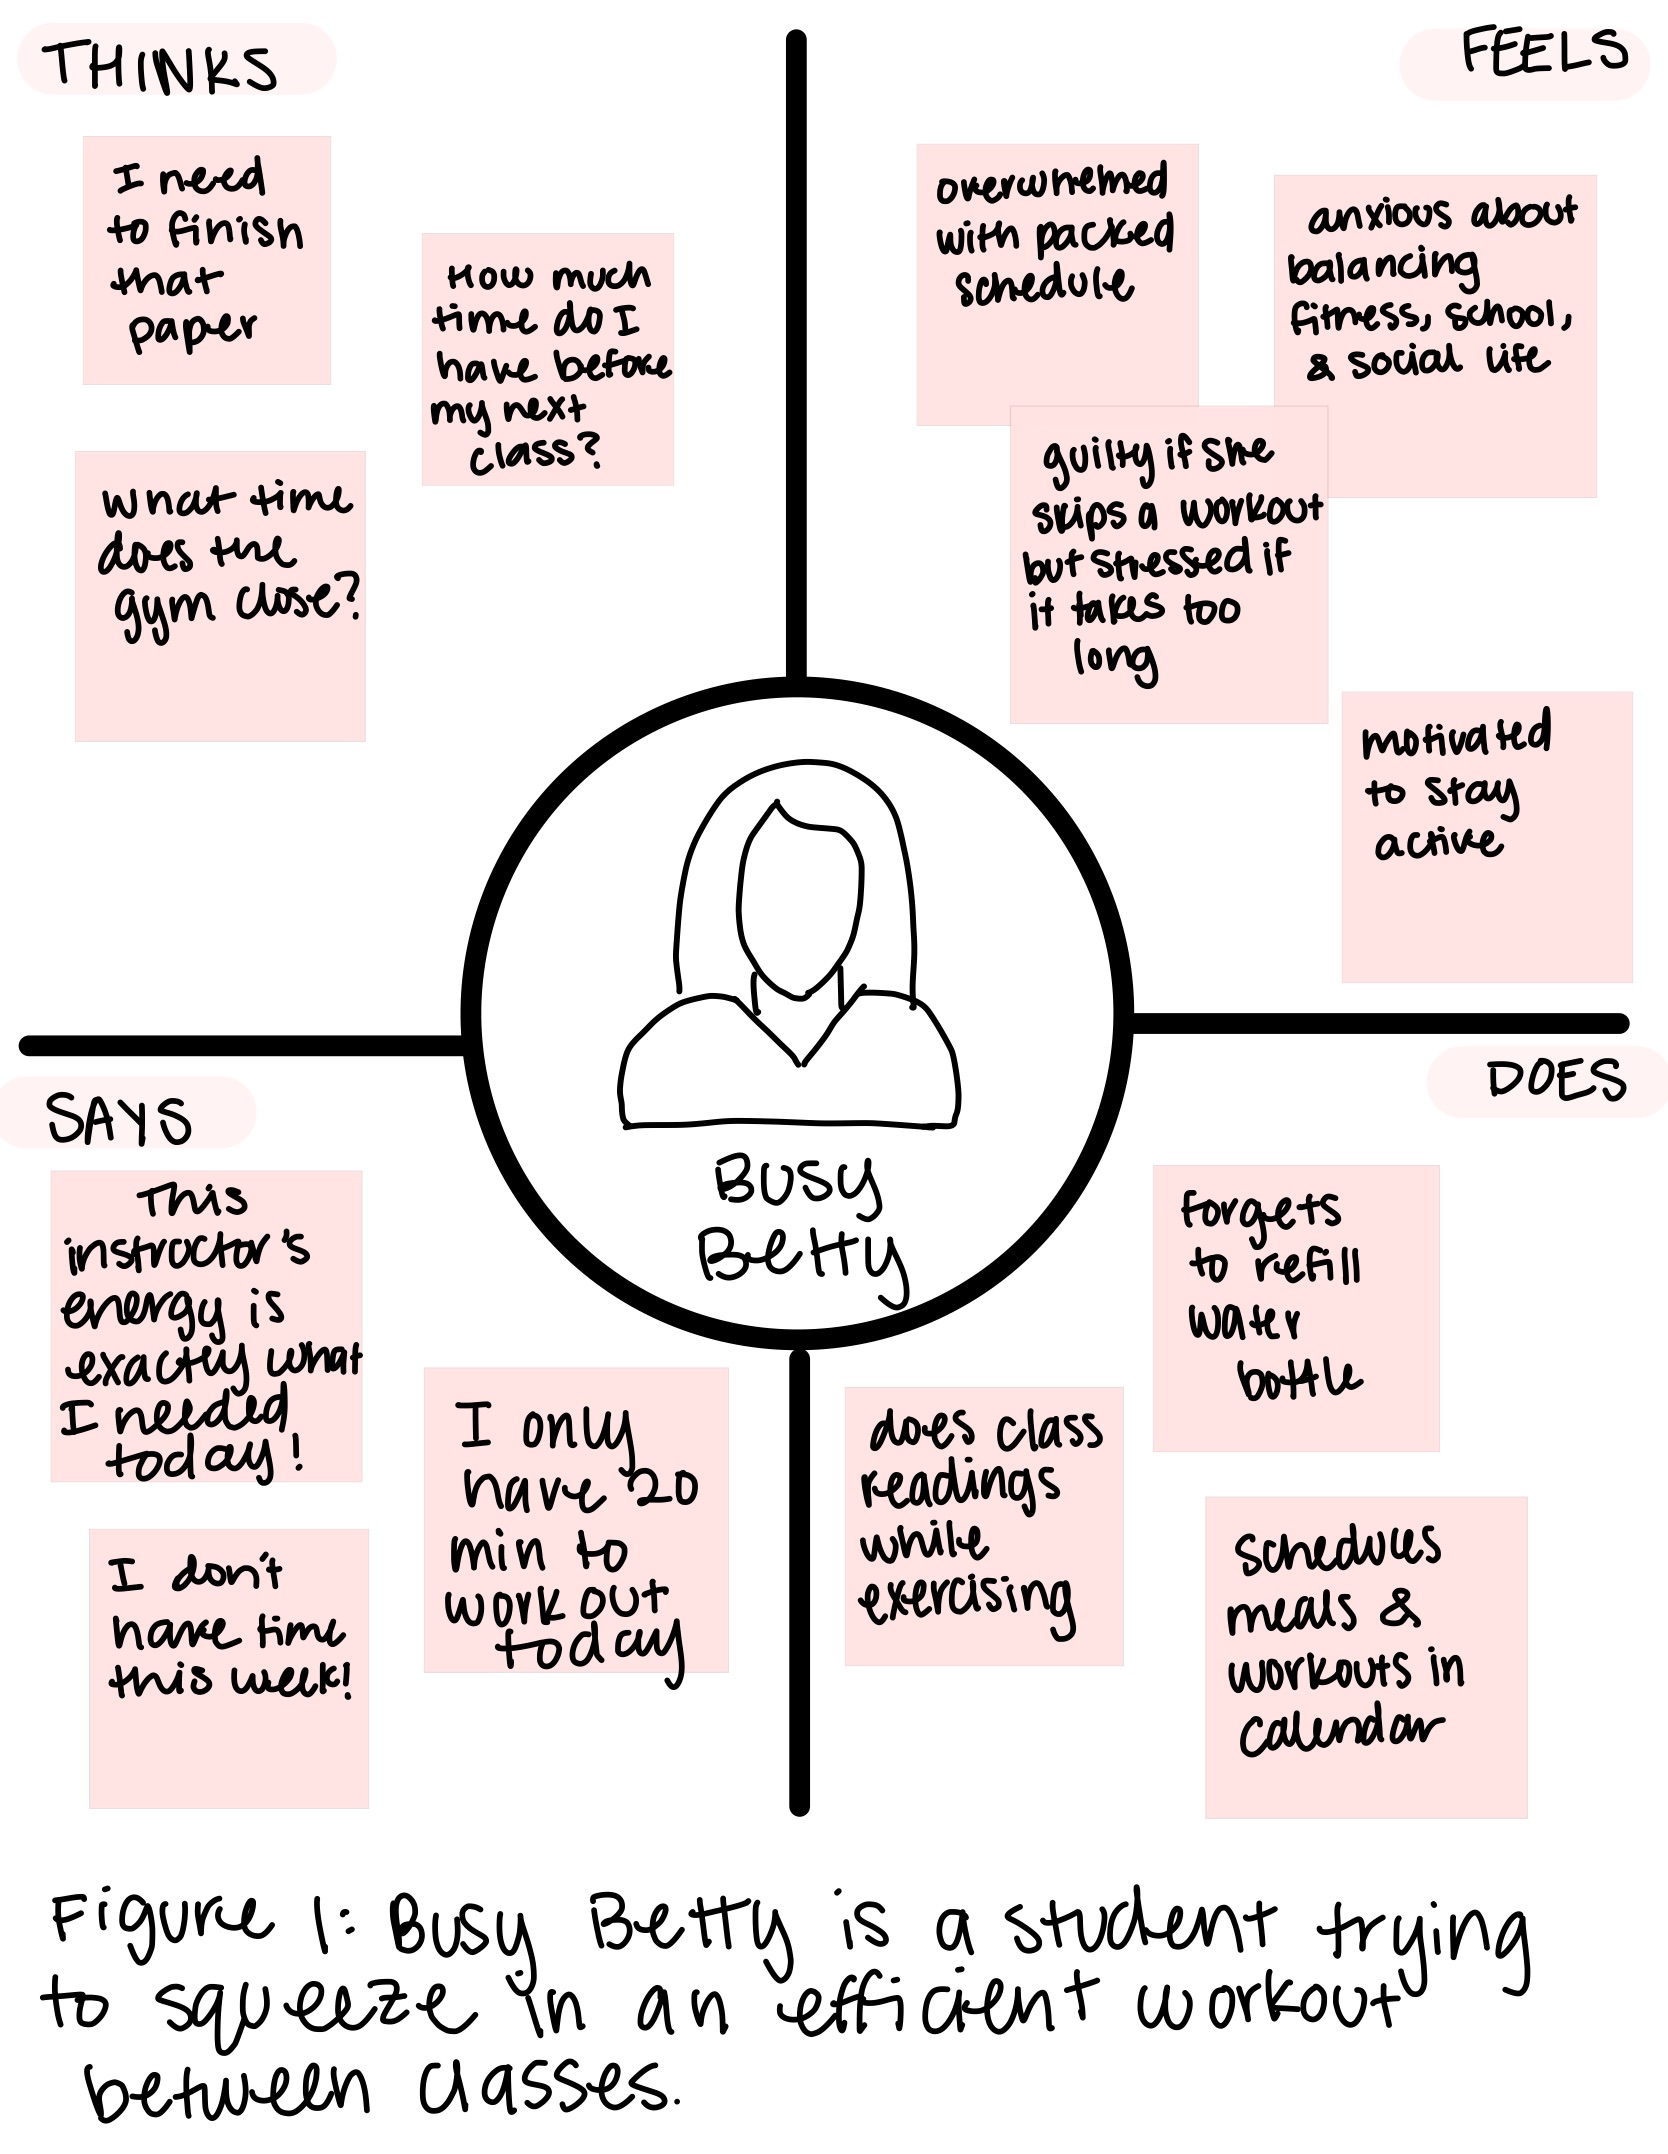 THINKS
I need
to finish
that
paper
How much
time do I
have before
my next
class?
What time
does the
gym close?
FEELS
overwhelmed
with packed
schedule
anxious about
balancing
fitness, school,
& social life
guilty if she
skips a workout
but stressed if
it takes too
long
motivated
to stay
active
BUSY
BETTY
SAYS
This
instructor's
energy is
exactly what
I needed
today!
I only
have 20
min to
work out
today
I don't
have time
this week!
DOES
forgets
to refill
water
bottle
does class
readings
while
exercising
schedules
meals &
workouts in
calendar
Figure 1: Busy Betty is a student trying
to squeeze in an efficient workout
between classes.